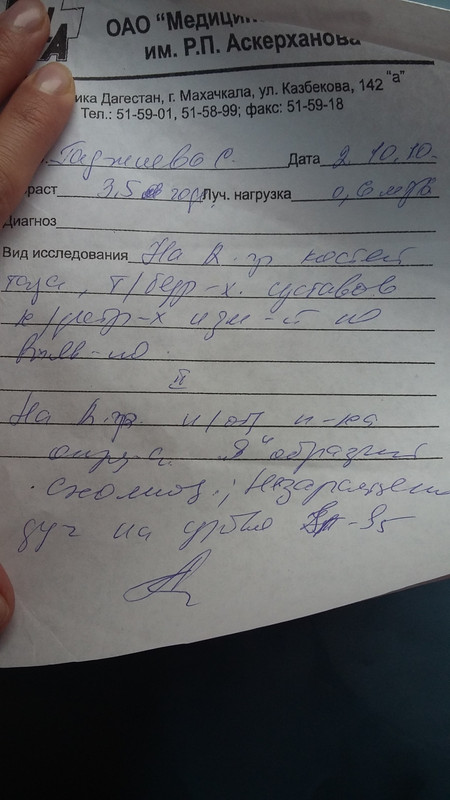 ОАО "Медицин
им. Р.П. Аскерханова
ика Дагестан, г. Махачкала, ул. Казбекова, 142 "а"
Тел.: 51-59-01, 51-58-99; факс: 51-59-18
Гаджиева С. Дата 2.10.10.
раст 3,5 год. Луч. нагрузка 0,6 мзв
Диагноз
Вид исследования На R-гр костей
таза, т/бедр-х суставов
к/дестр-х изм-й не
выяв-но.
II
На R-гр. п/оп п-ка
опр-ся "S" образный
сколиоз.; Незаращение
дуг на уровне S5